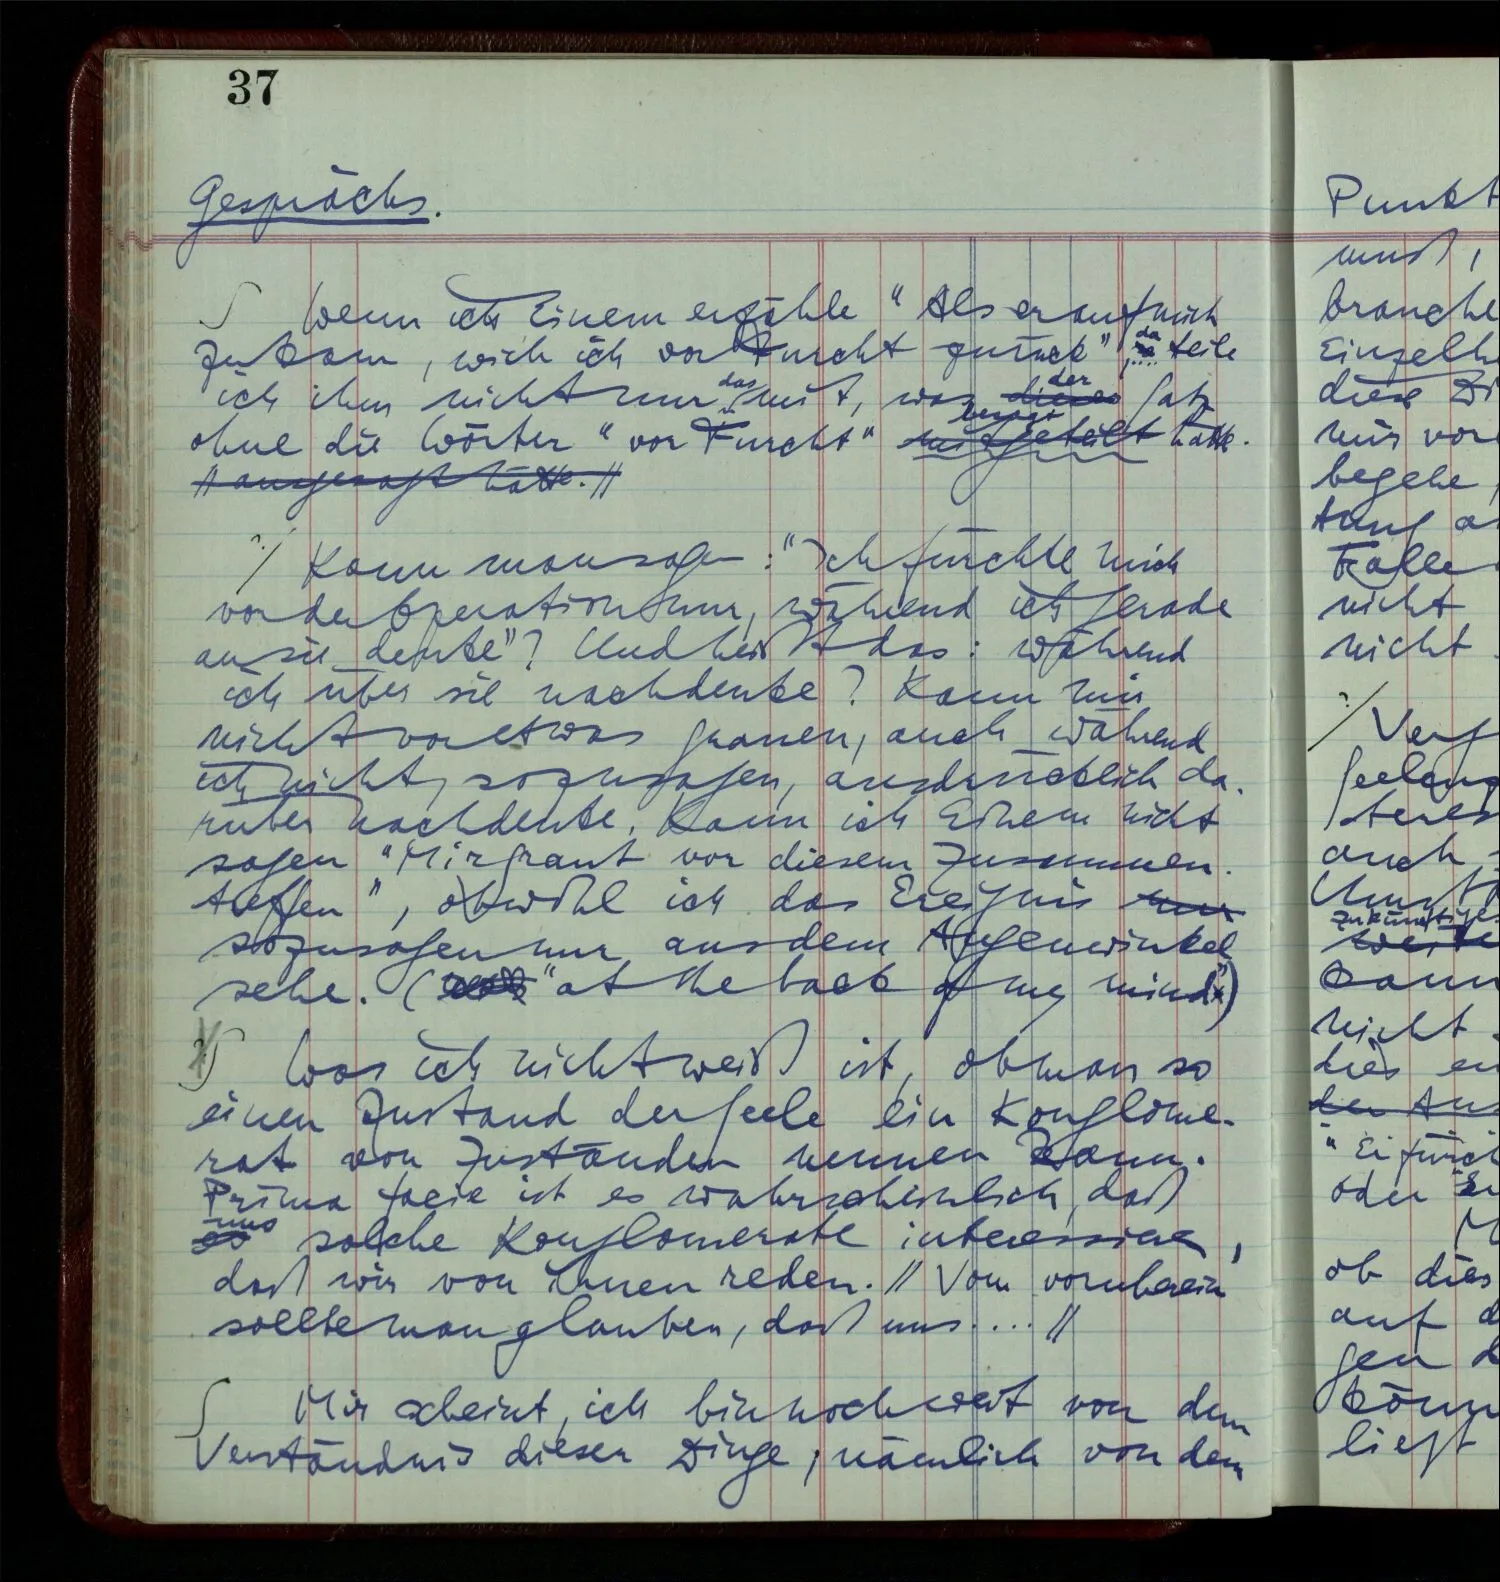 37
Gesprächs.
∫ Wenn ich Einem erzähle "Als er auf mich
zukam, wich ich vor Furcht zurück" da teile
ich ihm nicht nur das mit, was dieses der Satz
ohne die Wörter "vor Furcht" mitgeteilt hätte.
// ausgesagt hätte. //
?/ Kann man sagen: "Ich fürchte mich
vor der Operation nur, während ich gerade
an sie denke"? Und heißt das: während
ich über sie nachdenke? Kann mir
nicht vor etwas grauen, auch während
ich nicht, sozusagen, ausdrücklich da-
rüber nachdenke. Kann ich Einem nicht
sagen "Mir graut vor diesem Zusammen-
treffen", obwohl ich das Ereignis nur
sozusagen nur aus dem Augenwinkel
sehe. ("at the back of my mind")
∫ Was ich nicht weiß ist, ob man so
einen Zustand der Seele ein Konglome-
rat von Zuständen nennen kann.
Prima facie ist es wahrscheinlich, daß
es uns solche Konglomerate interessieren,
daß wir von ihnen reden. // Vom vornherein
sollte man glauben, daß uns .... //
∫ Mir scheint, ich bin noch weit von dem
Verständnis dieser Dinge, nämlich von dem
Punkt
muß,
brauche
Einzelh
diese Di
mir vor
begehe,
tung a
Falle
nicht
nicht
?/ Ver
auch
zukünftiges
kann
nicht
dies
oder
ob dies
auf d
gen d
könn
liest